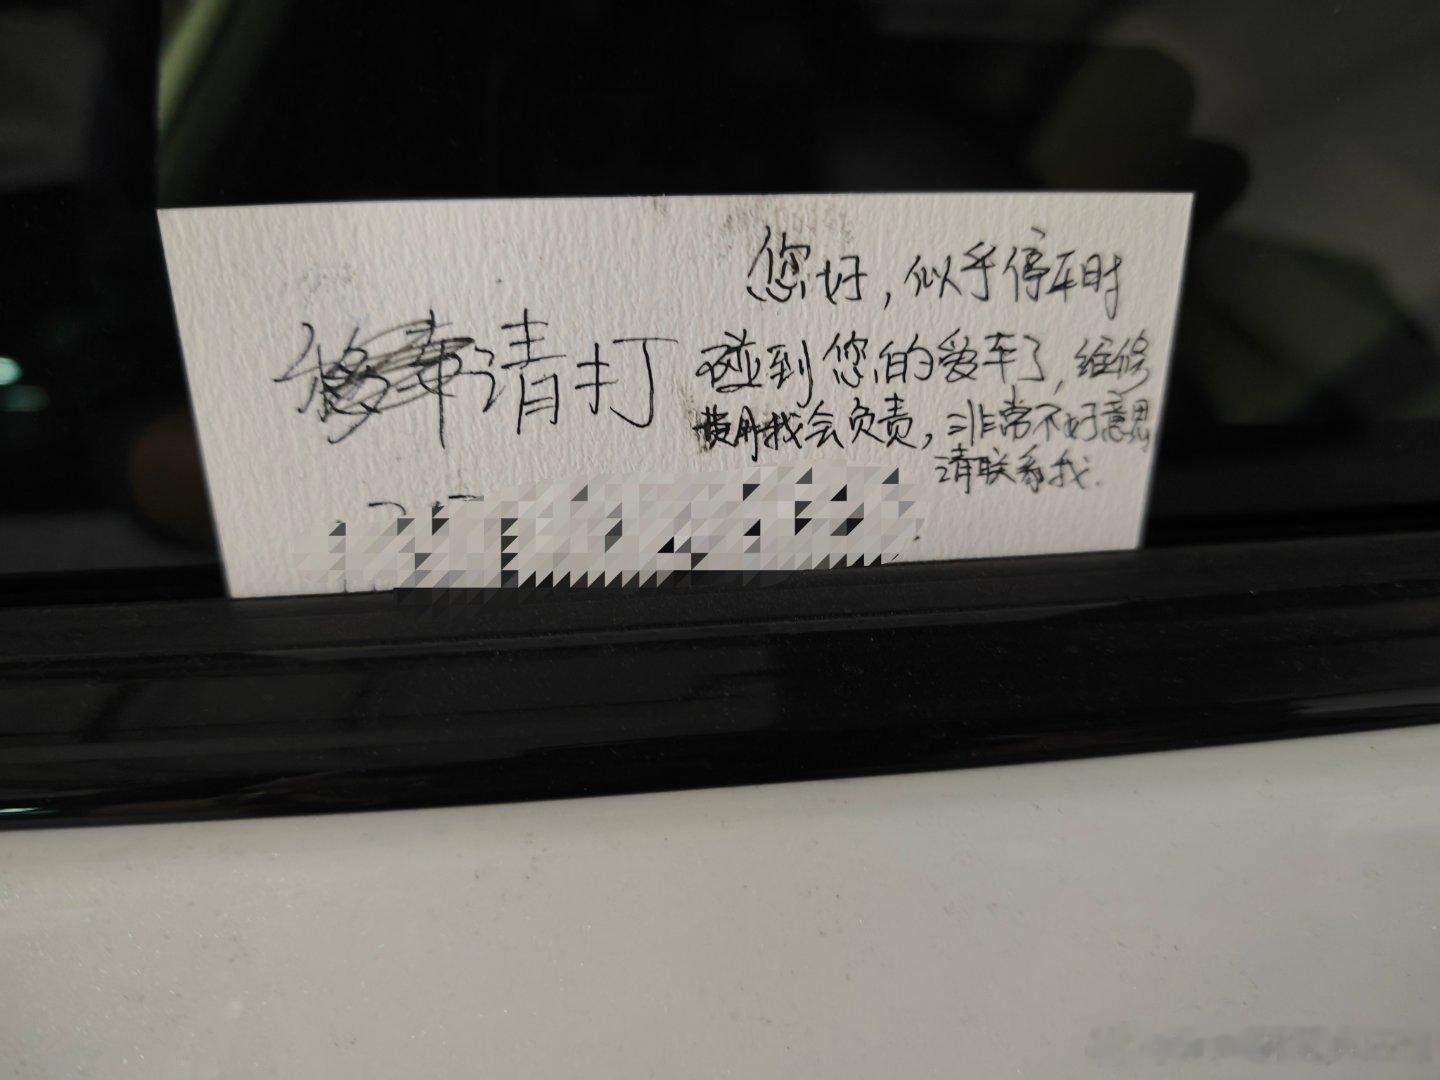 您好，似乎停车时
碰到您的爱车了，维修
费用我会负责，非常不好意思
请联系我.
请打